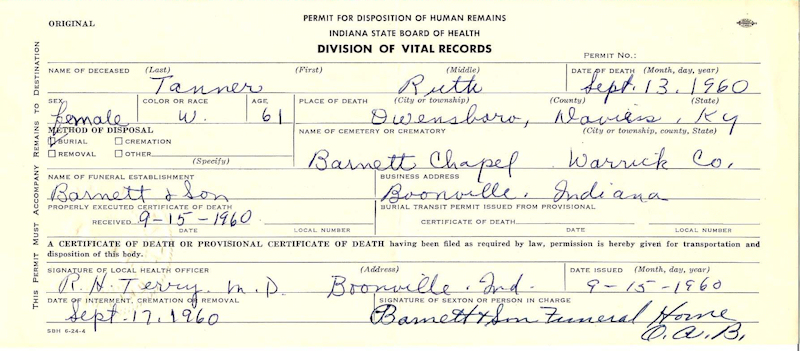 ORIGINAL
PERMIT FOR DISPOSITION OF HUMAN REMAINS
INDIANA STATE BOARD OF HEALTH
DIVISION OF VITAL RECORDS
PERMIT NO.:
NAME OF DECEASED (Last) (First) (Middle) DATE OF DEATH (Month, day, year)
Tanner Ruth Sept. 13, 1960
SEX COLOR OR RACE AGE PLACE OF DEATH (City or township) (County) (State)
female W. 61 Owensboro, Daviess, Ky
METHOD OF DISPOSAL NAME OF CEMETERY OR CREMATORY (City or township, county, State)
BURIAL CREMATION
REMOVAL OTHER (Specify)
Barnett Chapel Warrick Co.
NAME OF FUNERAL ESTABLISHMENT BUSINESS ADDRESS
Barnett & Son Boonville, Indiana
PROPERLY EXECUTED CERTIFICATE OF DEATH BURIAL TRANSIT PERMIT ISSUED FROM PROVISIONAL
RECEIVED 9-15-1960 CERTIFICATE OF DEATH
DATE LOCAL NUMBER DATE LOCAL NUMBER
A CERTIFICATE OF DEATH OR PROVISIONAL CERTIFICATE OF DEATH having been filed as required by law, permission is hereby given for transportation and
disposition of this body.
SIGNATURE OF LOCAL HEALTH OFFICER (Address) DATE ISSUED (Month, day, year)
R. H. Terry, M.D. Boonville, Ind. 9-15-1960
DATE OF INTERMENT, CREMATION OR REMOVAL SIGNATURE OF SEXTON OR PERSON IN CHARGE
Sept. 17, 1960 Barnett & Son Funeral Home
O.A.B.
SBH 6-24-4
THIS PERMIT MUST ACCOMPANY REMAINS TO DESTINATION